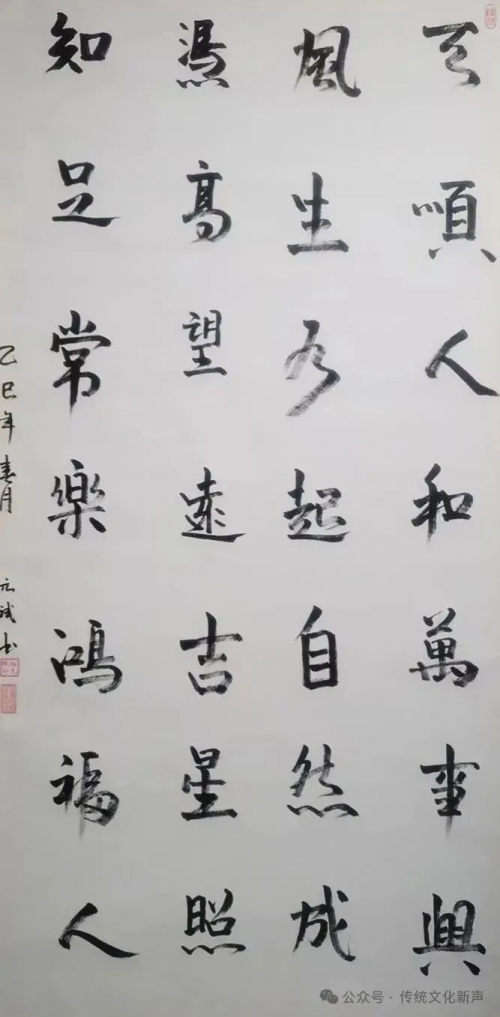 天順人和萬事興
風生水起自然成
馮高望遠吉星照
知足常樂鴻福人
乙巳年春月 元 书
公众号·传统文化新声